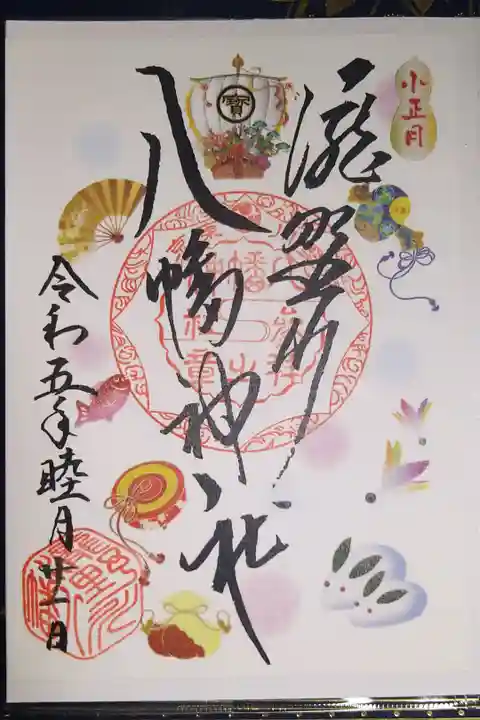 小正月
寳
瀧野川
八幡神社
令和五年睦月廿一日